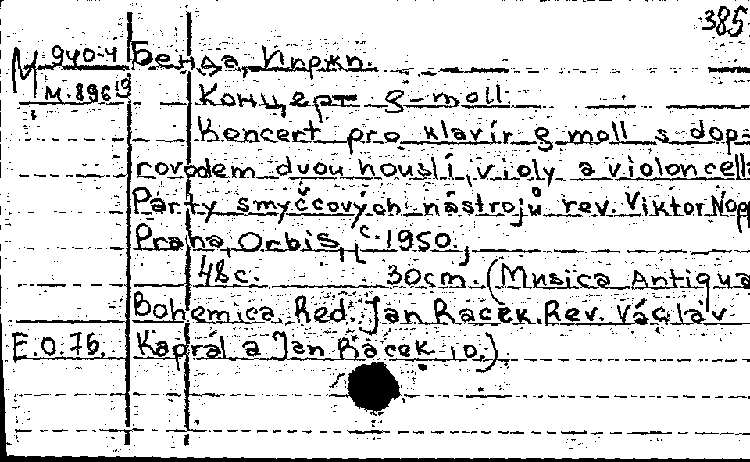 385
М 940-4 Бенда, Иржи.
М. 896 Концерт g-moll
Koncert pro klavír g moll s dop-
rovodem dvou houslí, violy a violoncella
Party smyčcových nástrojů rev. Viktor Nopp
Praha, Orbis, [c. 1950.,
48с. 30cm. (Musica Antiqua
Bohemica. Red. Jan Racek. Rev. Václav
E.O.76. Kaprál a Jan Racek 10.)